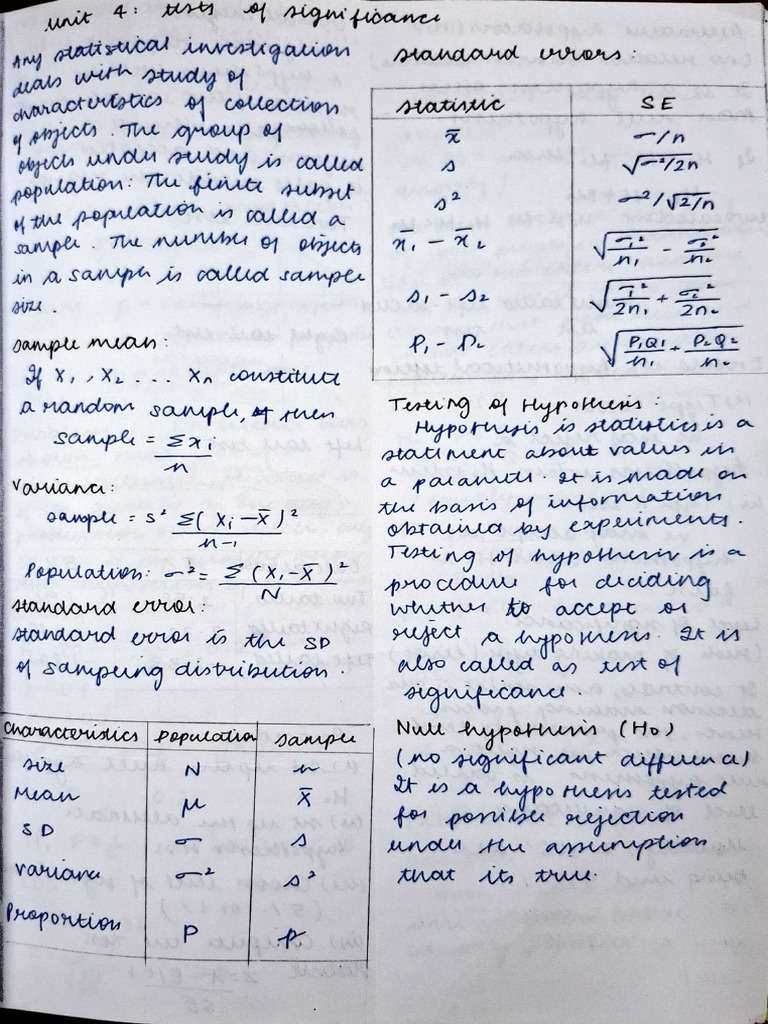 Unit 4: tests of significance
Any statistical investigation
deals with study of
characteristics of collection
of objects. The group of
objects under study is called
population. The finite subset
of the population is called a
sample. The number of objects
in a sample is called sample
size.
Sample mean:
If x₁, x₂ ... xₙ constitute
a random sample, then
Sample = Σxᵢ/n
Variance:
Sample = s² Σ(xᵢ - x̄)²/n-1
Population: σ² = Σ(xᵢ - x̄)²/N
Standard error:
Standard error is the SD
of sampering distribution.
Characteristics Population Sample
Size N n
Mean μ x̄
SD σ s
Variance σ² s²
Proportion P p
Standard errors:
Statistic SE
x̄ σ/n
s √σ²/2n
s² σ²/√2/n
x̄₁ - x̄₂ √σ₁²/n₁ - σ₂²/n₂
s₁ - s₂ √σ₁²/2n₁ + σ₂²/2n₂
P₁ - P₂ √P₁Q₁/n₁ + P₂Q₂/n₂
Testing of Hypothesis:
Hypothesis is statistics is a
statement about values in
a parameter. It is made on
the basis of information
obtained by experiments.
Testing of hypothesis is a
procedure for deciding
whether to accept or
reject a hypothesis. It is
also called as test of
significance.
Null hypothesis (H₀)
(no significant difference)
It is a hypothesis tested
for possible rejection
under the assumption
that its true.